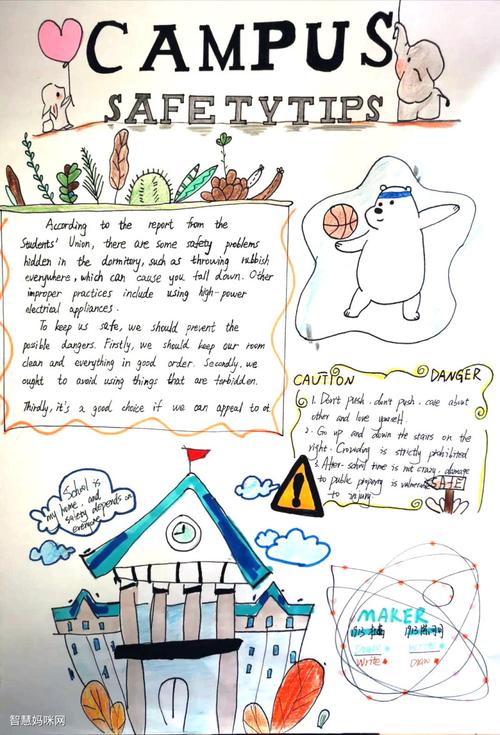 CAMPUS
SAFETYTIPS
According to the report from the
Students' Union, there are some safety problems
hidden in the dormitory, such as throwing rubbish
everywhere, which can cause you fall down. Other
improper practices include using high-power
electrical appliances.
To keep us safe, we should prevent the
possible dangers. Firstly, we should keep our room
clean and everything in good order. Secondly, we
ought to avoid using things that are forbidden.
Thirdly, it's a good choice if we can appeal to ot
CAUTION DANGER
1. Don't push. don't push. care about
other and love yourself.
2. Go up and down the stairs on the
right. Crowding is strictly prohibited
3. After-school time is not crazy. damage
to public property is vulnerable
to injury
SAFE
!
School is
my home, and
safety depends on
everyone
MAKER
1713 1713
Write Draw
智慧妈咪网